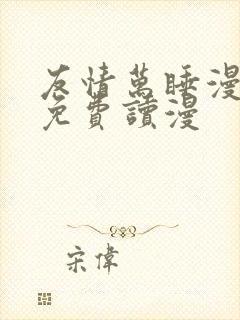 友情萬睡漫
免費讀漫
宋偉